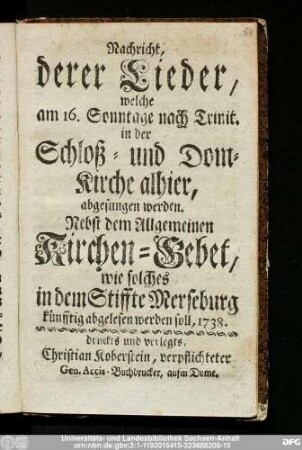 Nachricht,
derer Lieder,
welche
am 16. Sonntage nach Trinit.
in der
Schloß- und Dom-
Kirche alhier,
abgesungen werden.
Nebst dem Allgemeinen
Kirchen-Gebet,
wie solches
in dem Stiffte Merseburg
künfftig abgelesen werden soll, 1738.
druckts und verlegts,
Christian Koberstein, verpflichteter
Gen. Accis-Buchdrucker, aufm Dome.
Universitäts- und Landesbibliothek Sachsen-Anhalt
urn:nbn:de:gbv:3:1-1192015415-323688206-15